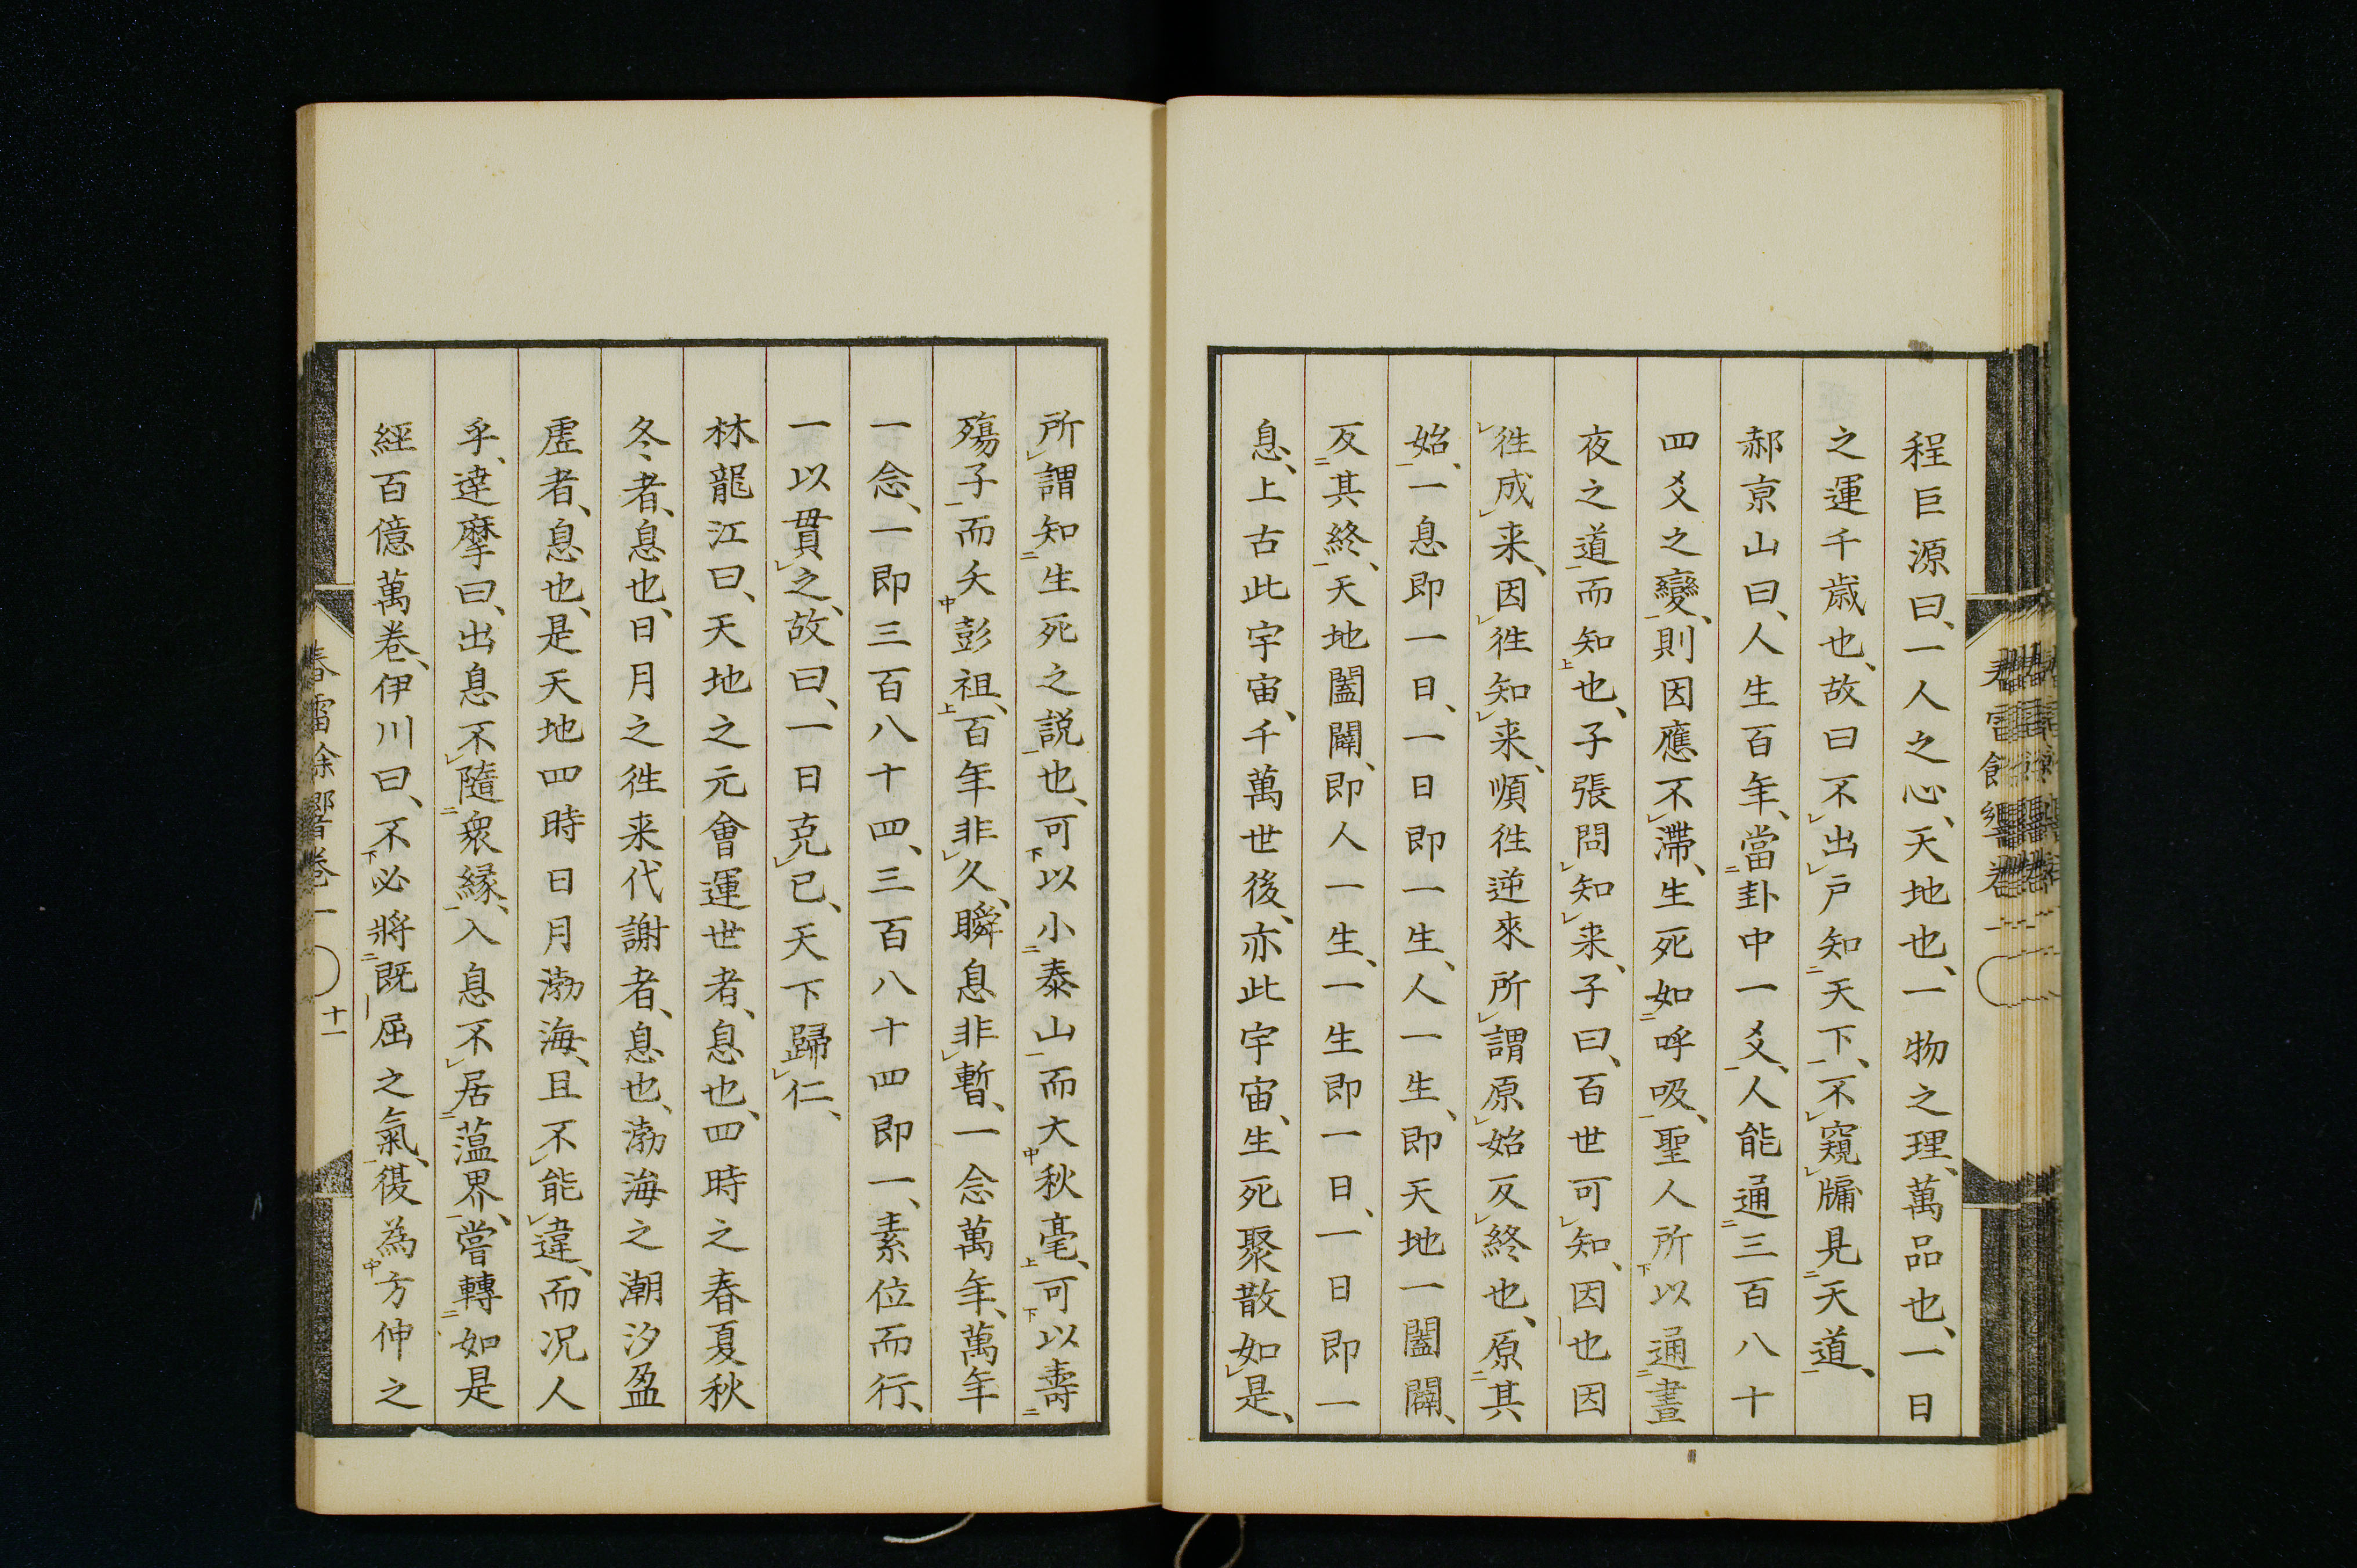 程巨源曰、一人之心、天地也、一物之理、萬品也、一日
之運千歳也、故曰不出戸知天下、不窺牖見天道、
郝京山曰、人生百年、當卦中一爻、人能通三百八十
四爻之變、則因應不滯、生死如呼吸、聖人所以通晝
夜之道而知也、子張問知来、子曰、百世可知、因也因
徃成来、因徃知来、順徃逆來所謂原始反終也、原其
始、一息即一日、一日即一生、人一生、即天地一闔闢、
反其終、天地闔闢、即人一生、一生即一日、一日即一
息、上古此宇宙、千萬世後、亦此宇宙、生死聚散如是、
所謂知生死之説也、可以小泰山而大秋毫、可以壽
殤子而夭彭祖、百年非久、瞬息非暫、一念萬年、萬年
一念、一即三百八十四、三百八十四即一、素位而行、
一以貫之、故曰、一日克已、天下歸仁、
林龍江曰、天地之元會運世者、息也、四時之春夏秋
冬者、息也、日月之徃来代謝者、息也、渤海之潮汐盈
虛者、息也、是天地四時日月渤海、且不能違、而况人
乎、達摩曰、出息不隨衆緣、入息不居蘊界、嘗轉如是
經百億萬卷、伊川曰、不必將既屈之氣、復為方伸之
春雷餘響卷一 十一